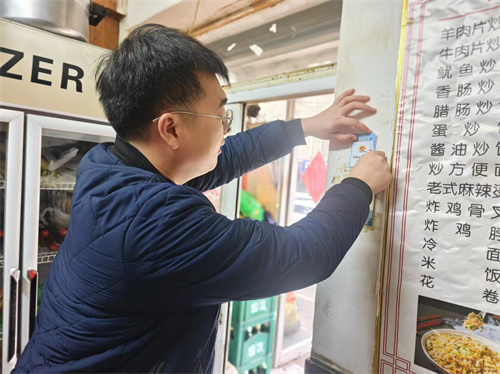 ZER
羊肉片炒
牛肉片炒
鱿鱼炒
香肠炒
腊肠炒
蛋炒
酱油炒
炒方便面
老式麻辣
炸鸡骨
炸鸡
冷面
米饭
花卷